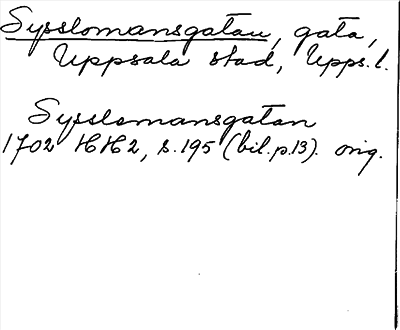 Sysslomansgatan, gata,
Uppsala stad, Upps.l.
Sysslomansgatan
1702 HH2, s.195 (bil.p.13). orig.